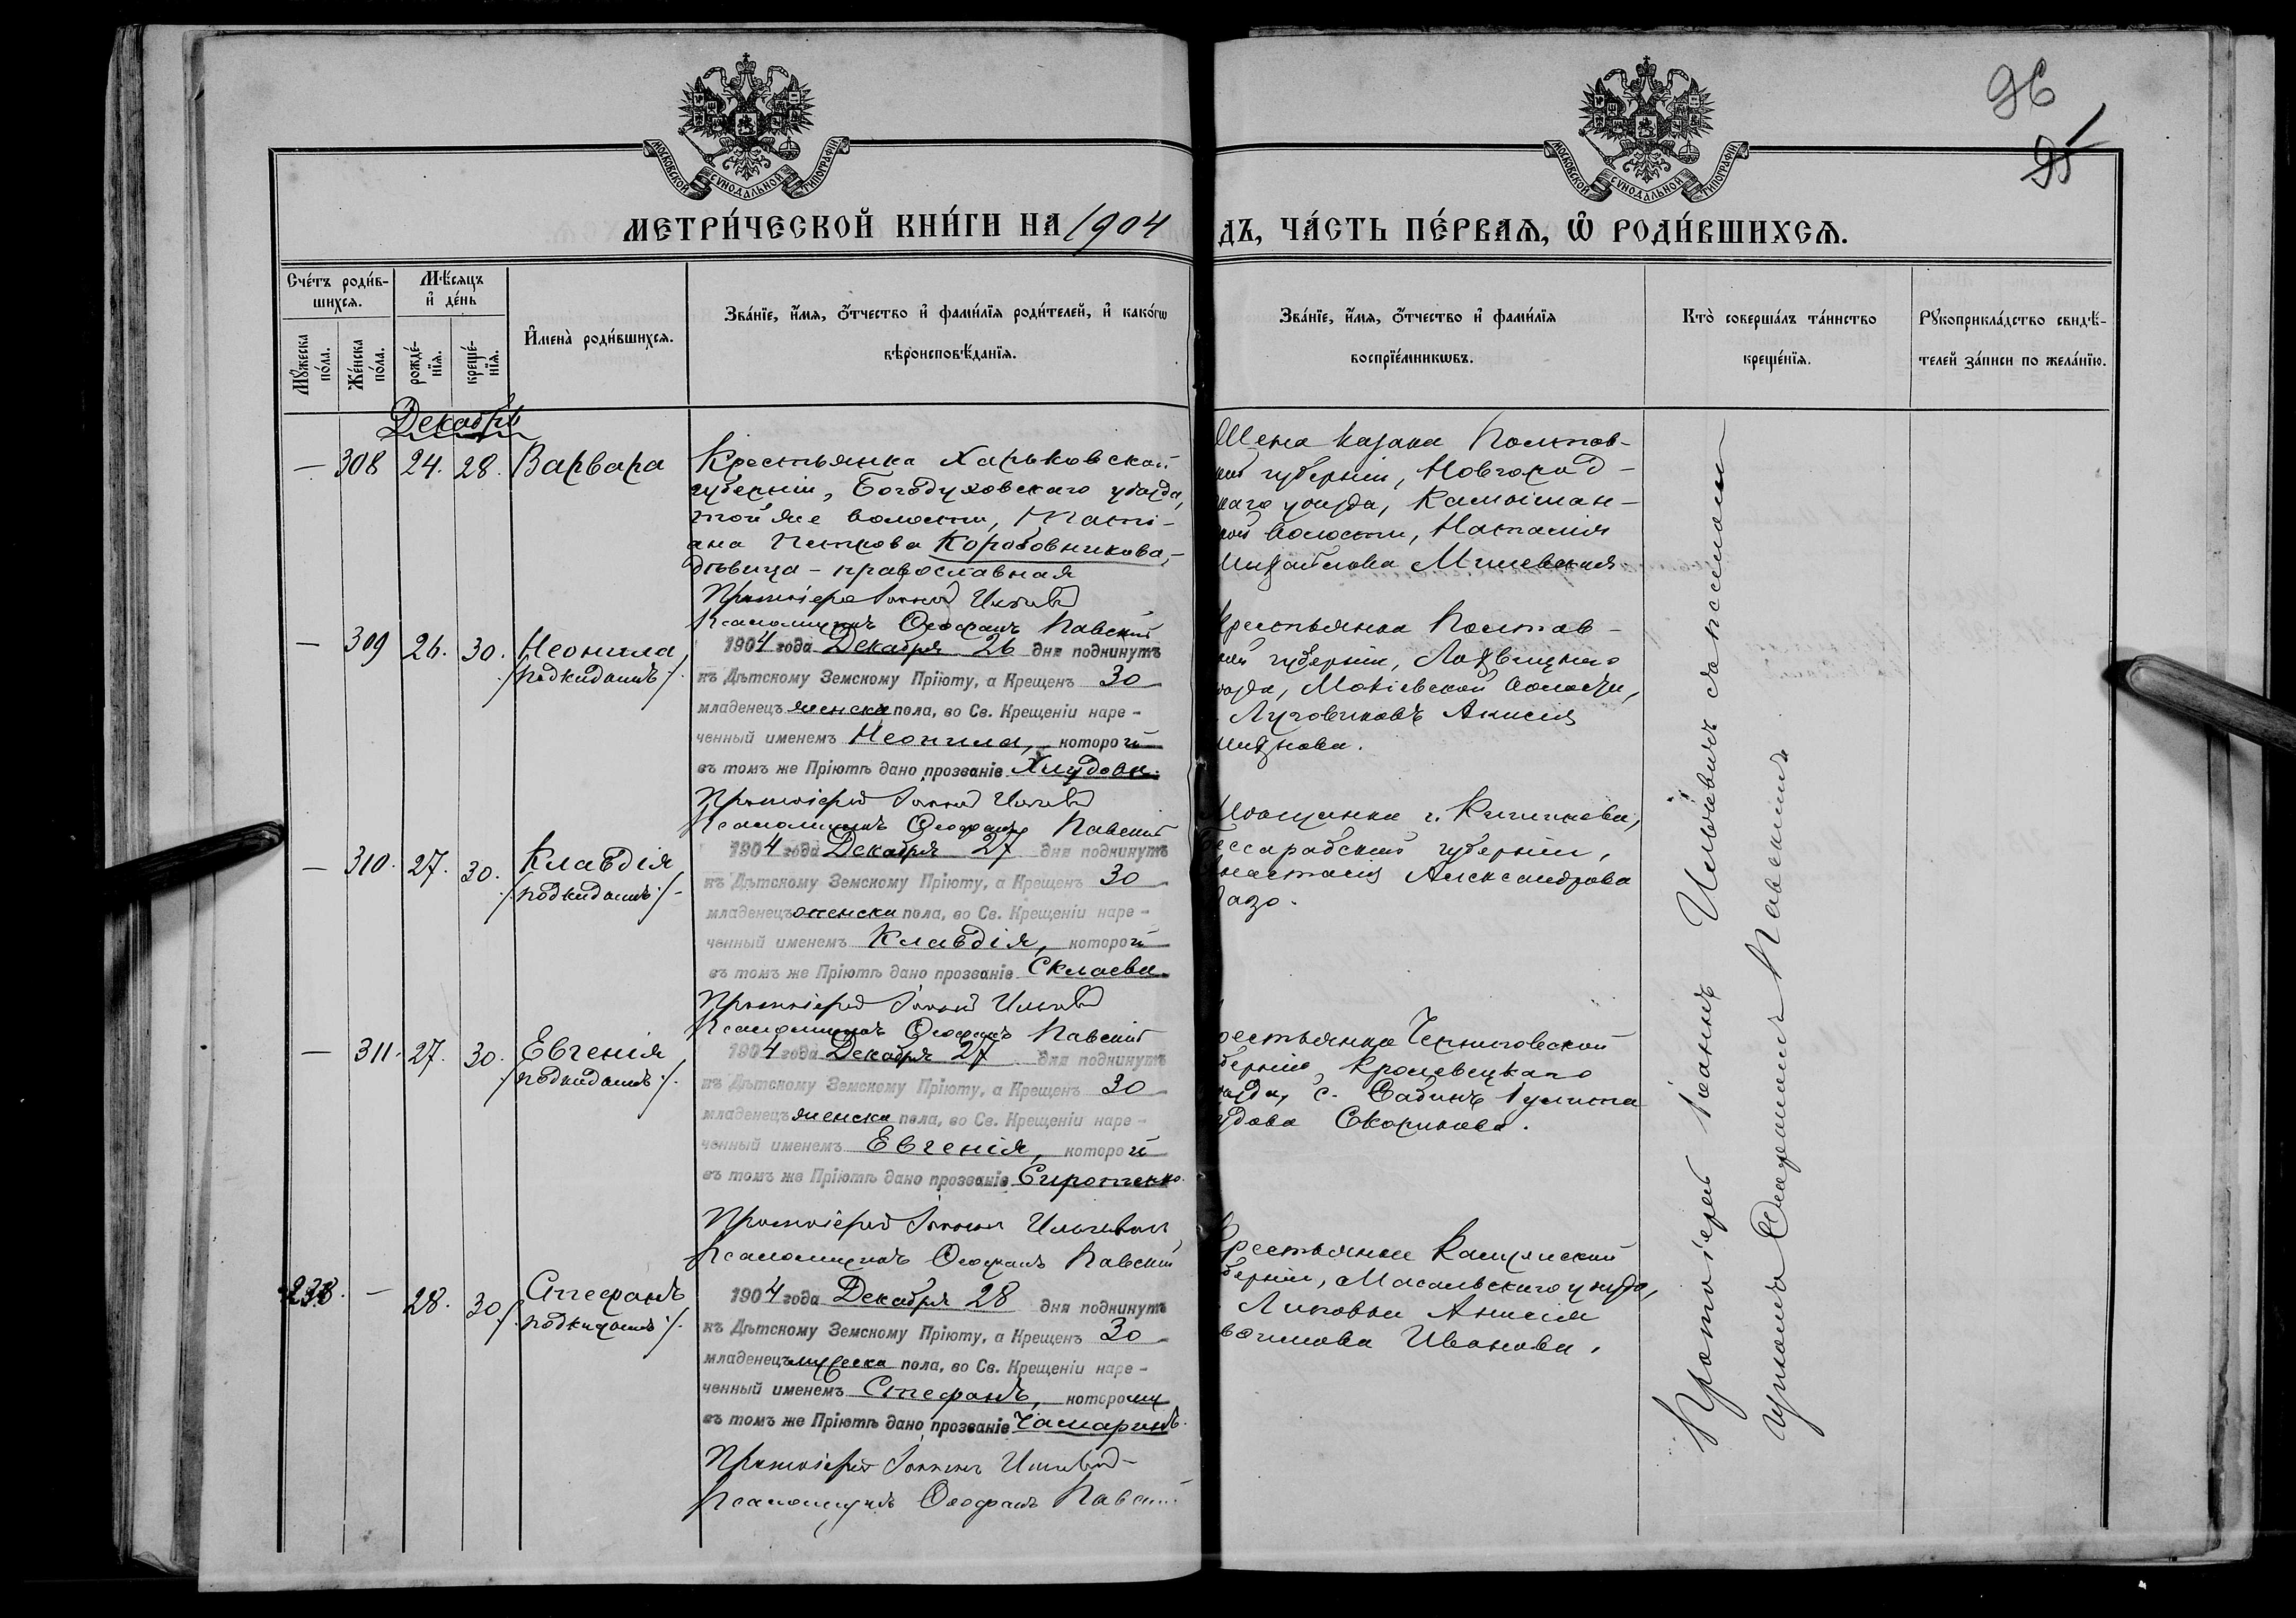 96
95
МОСКОВСКОЙ СѴНОДАЛЬНОЙ ТИПОГРАФІИ
МОСКОВСКОЙ СѴНОДАЛЬНОЙ ТИПОГРАФІИ
МЕТРИ́ЧЕСКОЙ КНИ́ГИ НА 1904
ДЪ, ЧА́СТЬ ПЕ́РВАѦ, Ѡ҆ РОДИ́ВШИХСѦ.
Сче́тъ роди́в-
шихсѧ.
Мꙋ́жеска по́ла.
Же́нска по́ла.
Мѣ́сѧцъ
и҆ де́нь
рожде́-
нїѧ.
креще́-
нїѧ.
И҆мена̀ роди́вшихсѧ.
Зва́нїе, и҆́мѧ, ѻ҆́тчество и҆ фами́лїѧ роди́телей, и҆ како́гѡ
вѣроисповѣ́данїѧ.
Зва́нїе, и҆́мѧ, ѻ҆́тчество и҆ фами́лїѧ
воспрїе́мникѡвъ.
Кто̀ соверша́лъ та́инство
креще́нїѧ.
Рꙋкоприкла́дство свидѣ́-
телей за́писи по жела́нїю.
Декабрь
— 308 24. 28. Варвара
Крестьянка Харьковской
губерніи, Богодуховскаго уѣзда,
той же волости, Тати-
ана Петрова Коробовникова,-
дѣвица - православная
Протоіерей Іоаннъ
Псаломщикъ Ѳеофанъ Павскій
Жена казака Полтав-
губерніи, Новгород-
каго уѣзда, Камышан-
кой волости, Наталія
Михайлова
— 309 26. 30. Неонила
/подкидышъ/.
1904 года Декабря 26 дня подкинутъ
къ Дѣтскому Земскому Пріюту, а Крещенъ 30
младенецъ женска пола, во Св. Крещеніи наре-
ченный именемъ Неонила, которой
въ томъ же Пріютѣ дано прозваніе Хлудова.
Протоіерей Іоаннъ
Псаломщикъ Ѳеофанъ Павскій
крестьянка Полтав-
кой губерніи, Лохвицкаго
ѣзда, волости,
Луговиковъ Анисія
— 310. 27. 30. Клавдія
/подкидышъ/-
1904 года Декабря 27 дня подкинутъ
къ Дѣтскому Земскому Пріюту, а Крещенъ 30
младенецъ женска пола, во Св. Крещеніи наре-
ченный именемъ Клавдія, которой
въ томъ же Пріютѣ дано прозваніе Склаева.
Протоіерей Іоаннъ
Псаломщикъ Ѳеофанъ Павскій
Мѣщанка г. Кишинева,
ессарабской губерніи,
настасія Александрова
— 311. 27. 30. Евгенія
/подкидышъ/.
1904 года Декабря 27 дня подкинутъ
къ Дѣтскому Земскому Пріюту, а Крещенъ 30
младенецъ женска пола, во Св. Крещеніи наре-
ченный именемъ Евгенія, которой
въ томъ же Пріютѣ дано прозваніе Сиротенко.
Протоіерей Іоаннъ
Псаломщикъ Ѳеофанъ Павскій
рестьянка Черниговской
берніи, Кролевецкаго
ѣзда, с.
238. — 28. 30 Стефанъ
/подкидышъ/.
1904 года Декабря 28 дня подкинутъ
къ Дѣтскому Земскому Пріюту, а Крещенъ 30
младенецъ мужеска пола, во Св. Крещеніи наре-
ченный именемъ Стефанъ, которому
въ томъ же Пріютѣ дано прозваніе Чамаринъ.
Протоіерей Іоаннъ
Псаломщикъ Ѳеофанъ Павскій
рестьянка Калужской
берніи, Масальскаго уѣзда,
Анисія
Иванова.
Протоіерей Іоаннъ съ псалом
щикомъ Павскимъ